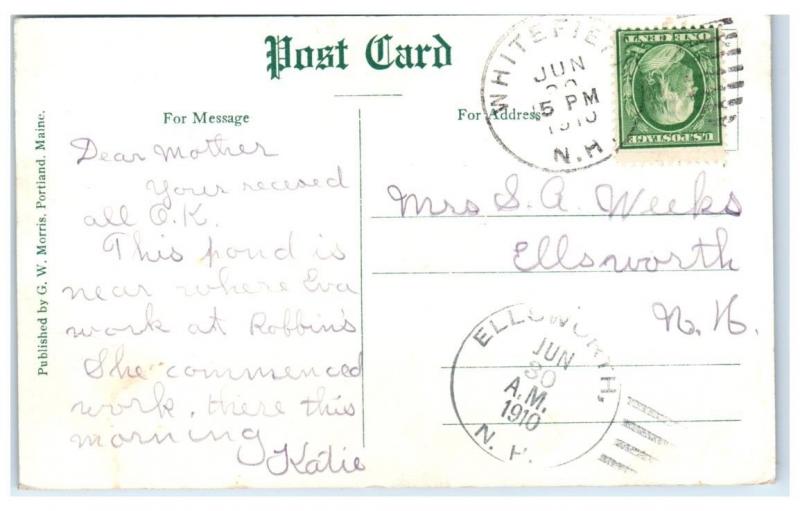 Post Card
For Message
For Address
Published by G. W. Morris, Portland, Maine.
WHITEFIE
JUN
5 PM
1910
N.H.
ONE CENT
U.S. POSTAGE
Dear Mother
Your received
all O.K.
This pond is
near where Eva
work at Robbin's
She commenced
work, there this
morning
Katie
Mrs S. A. Weeks
Ellsworth
N. H.
ELLSWORTH,
JUN
30
A.M.
1910
N. H.